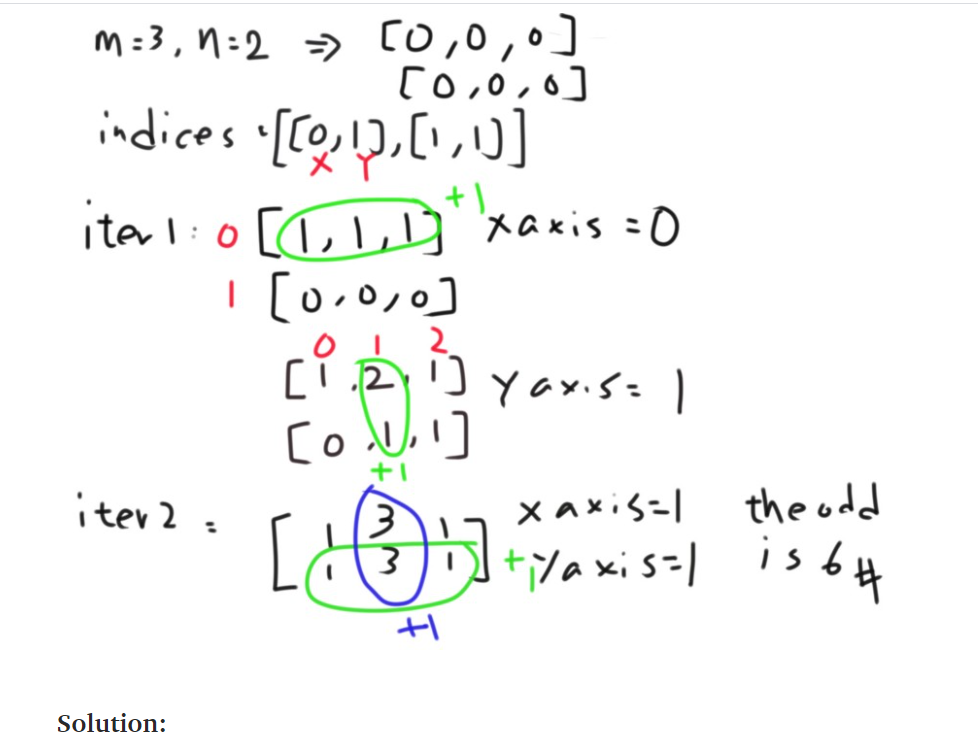 m=3, n=2 ⇒ [0,0,0]
[0,0,0]
indices : [[0,1],[1,1]]
X Y
iter 1: 0 [1,1,1] +1 xaxis=0
1 [0,0,0]
0 1 2
[1,2,1] Yaxis=1
[0,1,1]
+1
iter 2 : [1 3 1 xaxis=1 the odd
1 3 1] +1 Yaxis=1 is 6#
+1
Solution: